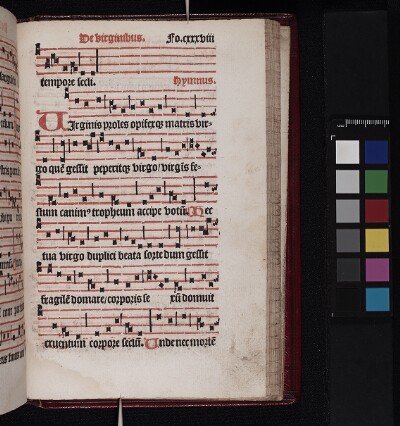 De virginibus. Fo.cxxxviii
tempore secli. Hymnus.
Virginis proles opifexqꝫ matris vir-
go quē gessit peperitqꝫ virgo/virgīs fe-
stum canimꝰ tropheum accipe votū. Hec
tua virgo duplici beata sorte dum gessit
fragilē domare/corporis se xū domuit
cruentum corpore seclū. Unde nec mortē